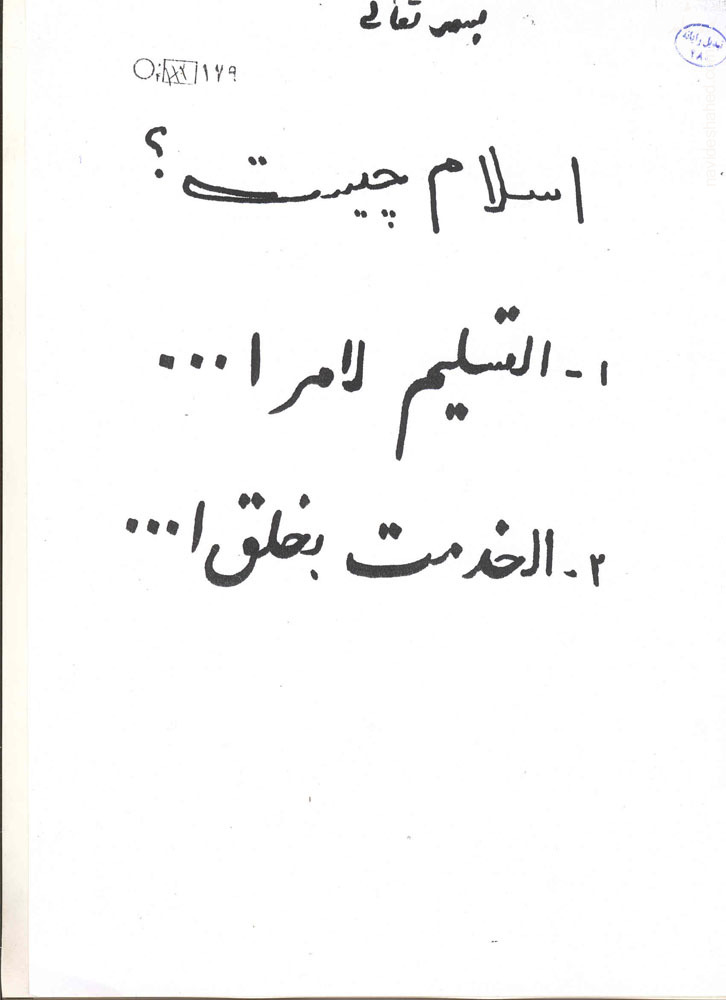 بسمه تعالی
۱۷۹
اسلام چیست؟
۱- التسلیم لامر ا...
۲- الخدمت بخلق ا...